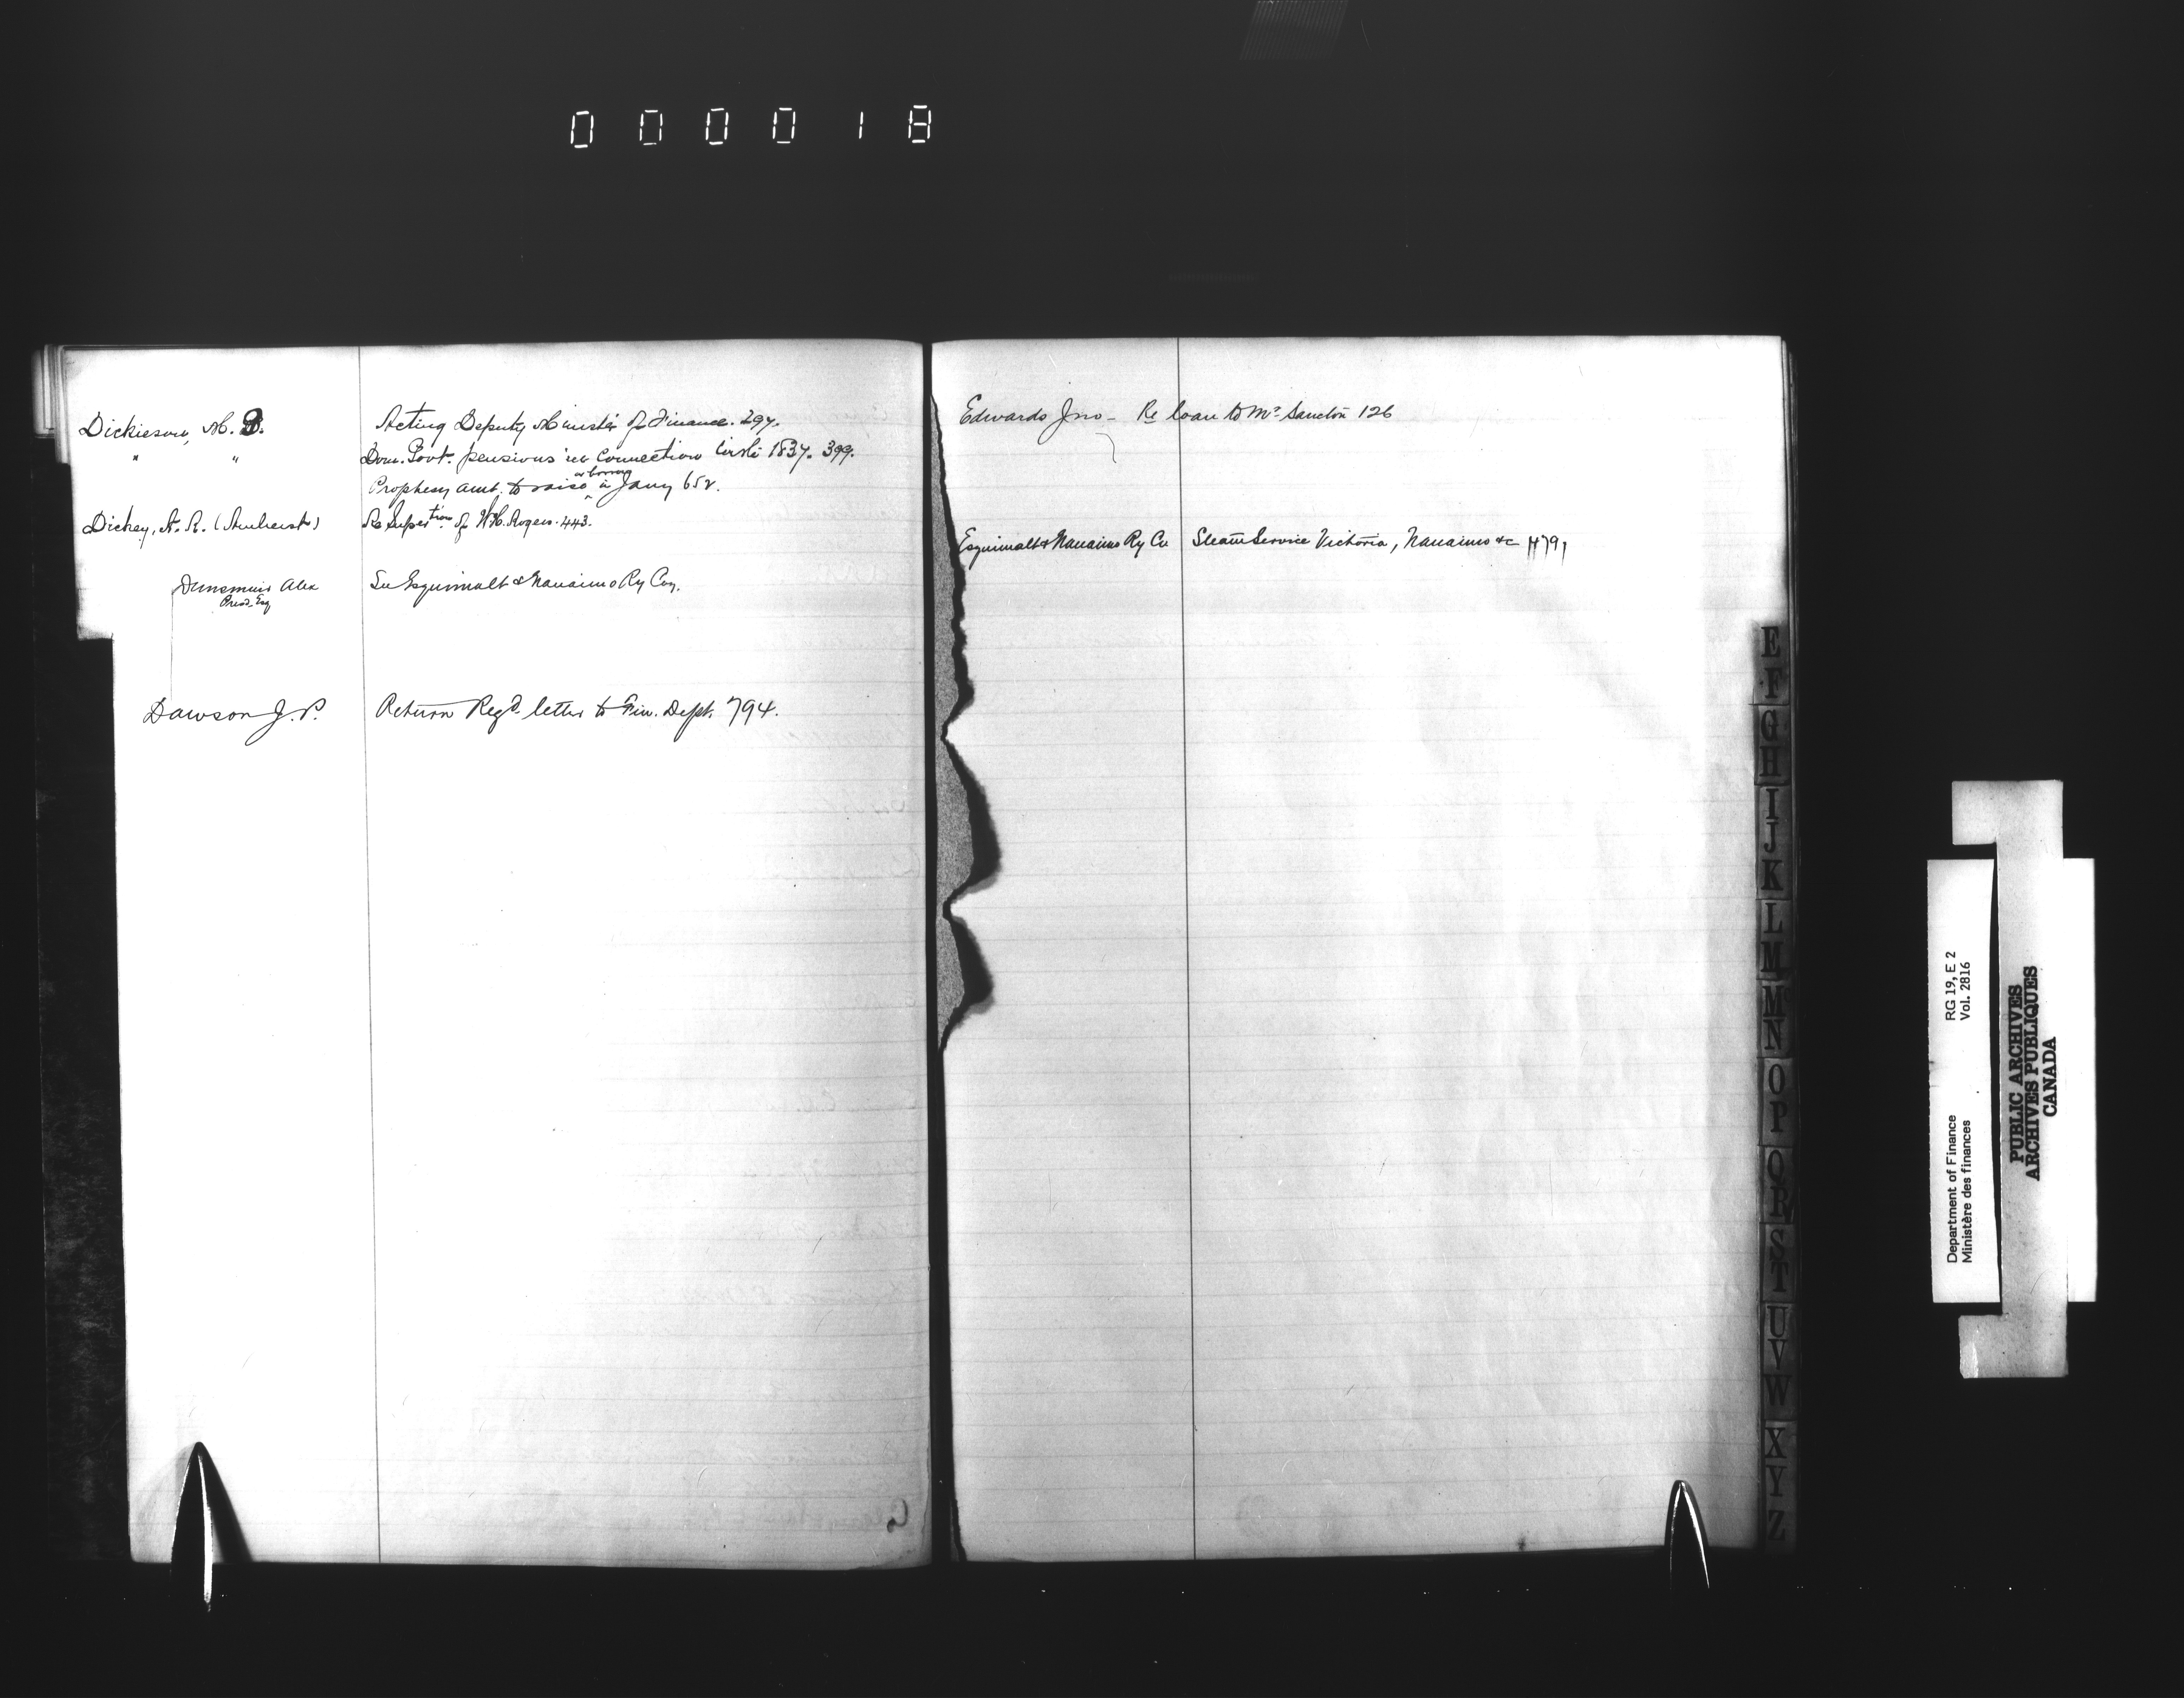 000018
Dickieson, M. G. Acting Deputy Minister of Finance. 297.
" " Dom. Govt. pensions in connection with 1837. 399.
or borrow
Prophesy amt. to raise ^ in Jany 652.
Dickey, A. R. (Amherst) Re Superation of W.H. Rogers. 443.
Dunsmuir Alex See Esquimalt & Nanaimo Ry Coy.
Presd. Esq
Dawson J. P. Return Regd letter to Fin. Dept. 794.
Edwards Jno - Re loan to Mr. Sancton 126
Esquimalt & Nanaimo Ry Co Steam Service Victoria, Nanaimo &c 479
E
F
G
H
I
J
K
L
M
Mc
N
O
P
Q
R
S
T
U
V
W
X
Y
Z
Department of Finance RG 19, E 2
Ministère des finances Vol. 2816
PUBLIC ARCHIVES
ARCHIVES PUBLIQUES
CANADA